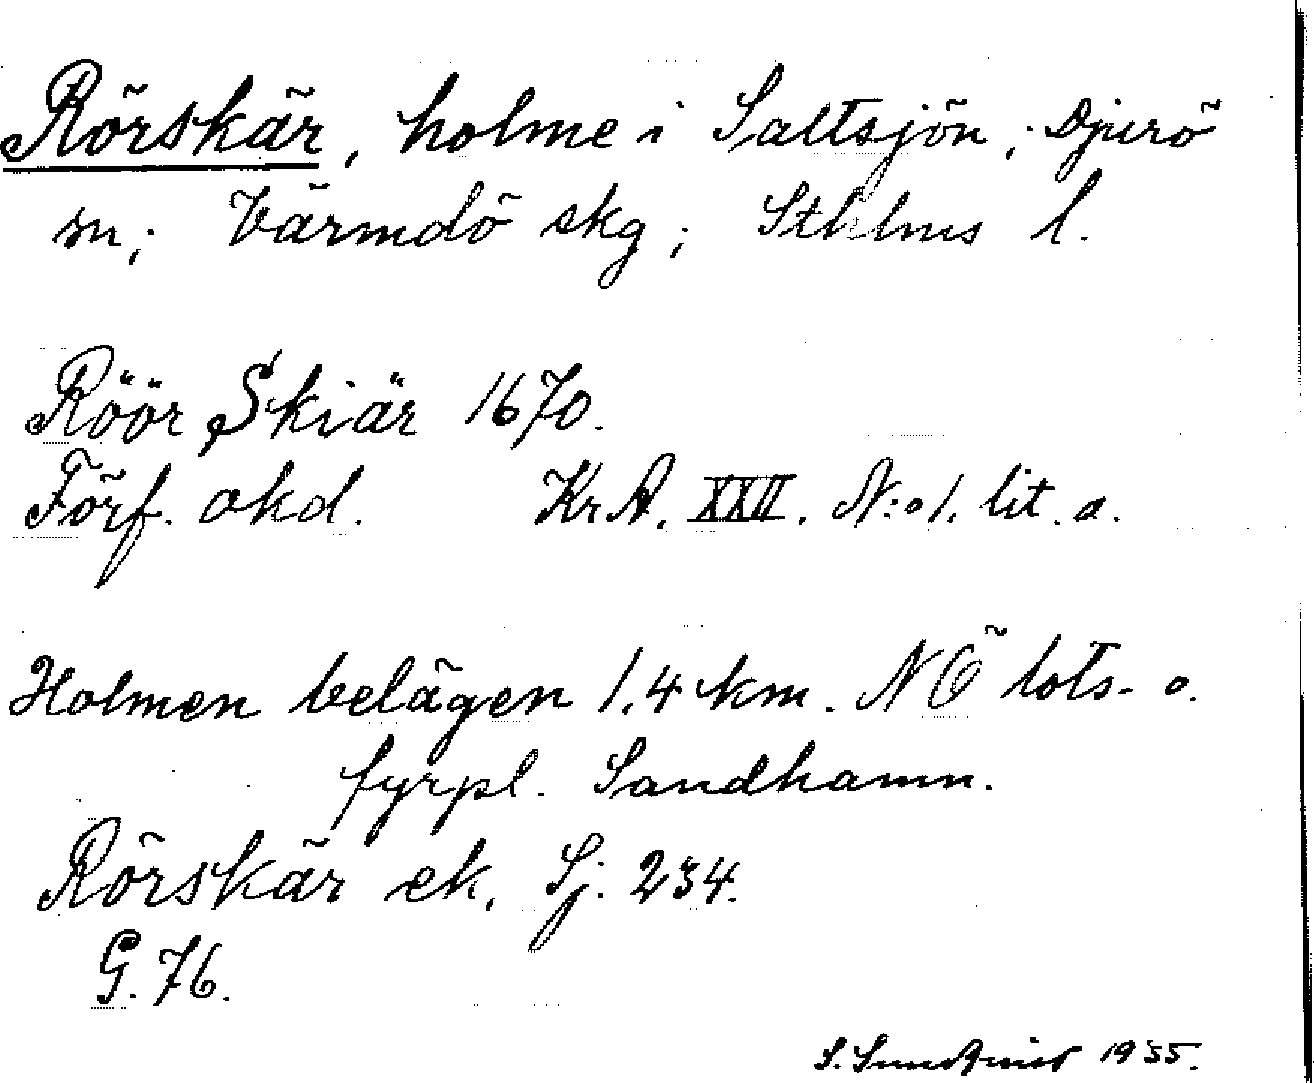 Rörskär, holme i Saltsjön; Djurö
sn; Värmdö skg; Sthlms l.
Röör Skiär 1670.
Förf. okd. KrA. XXII. N:o 1. lit. a.
Holmen belägen 1,4 km. NÖ lots- o.
fyrpl. Sandhamn.
Rörskär ek. Sj. 234.
G. 76.
S. Sundqvist 1955.